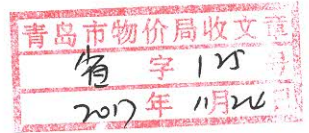 青岛市物价局收文章
省 字 125 号
2017 年 11月24日